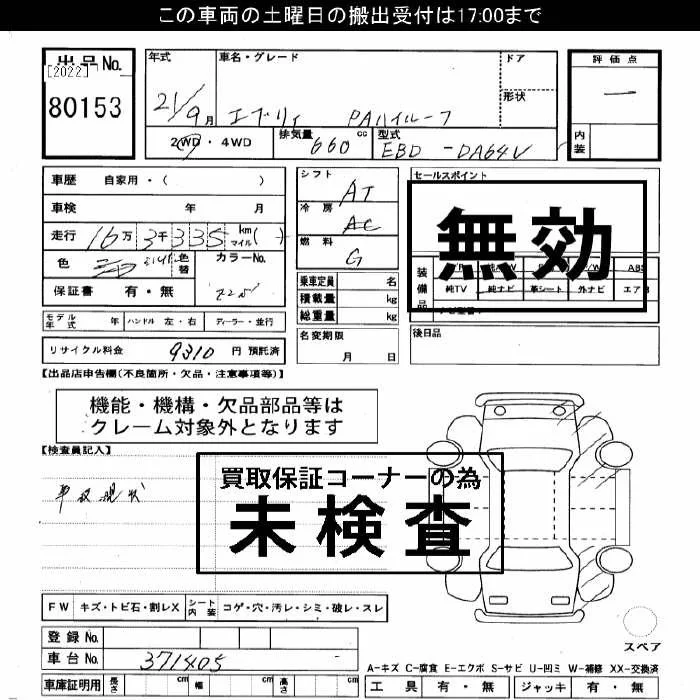 この車両の土曜日の搬出受付は17:00まで
出品No.
[2022]
80153
年式
21/9月
車名・グレード
エブリィ PAハイルーフ
ドア
形状
評価点
内装
2WD・4WD
排気量 660 cc
型式 EBD-DA64V
車歴 自家用・( )
車検 年 月
走行 16万3千335 km マイル( )
色 色替
カラーNo.
保証書 有・無
シフト AT
冷房 AC
燃料 G
乗車定員 名
積載量 kg
総重量 kg
セールスポイント
無効
装備品
純TV 純ナビ 革シート 外ナビ エアB
モデル年式 年 ハンドル 左・右 ディーラー・並行
名変期限
月 日
後日品
リサイクル料金 9310 円 預託済
【出品店申告欄(不良箇所・欠品・注意事項等)】
機能・機構・欠品部品等は
クレーム対象外となります
【検査員記入】
買取保証コーナーの為
未検査
車両現状
FW キズ・トビ石・割レX シート内装 コゲ・穴・汚レ・シミ・破レ・スレ
登録No.
車台No. 371405
スペア
A-キズ C-腐食 E-エクボ S-サビ U-凹ミ W-補修 XX-交換済
車庫証明用 長さ cm 幅 cm 高さ cm
工具 有・無 ジャッキ 有・無